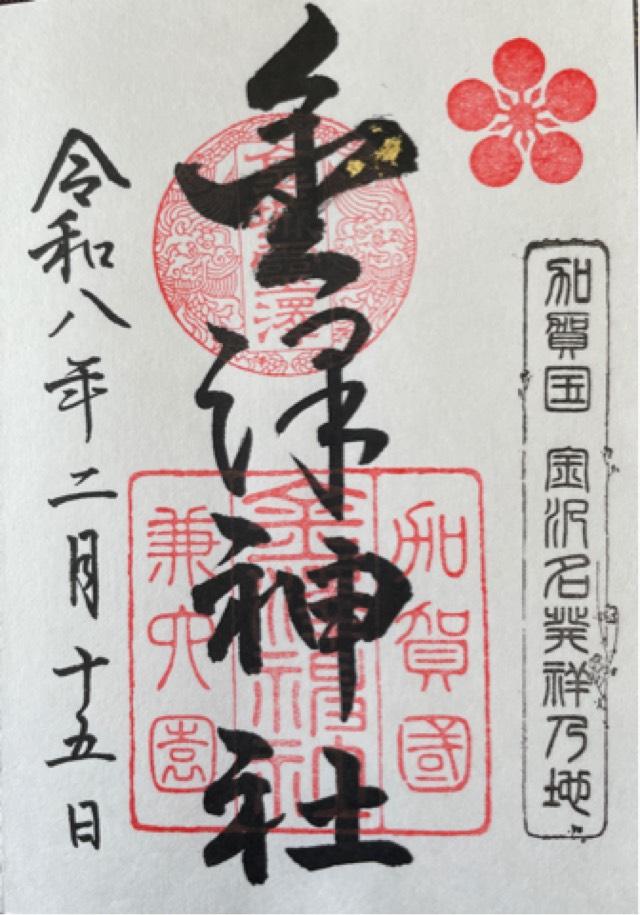 加賀国 金沢名発祥乃地
金澤神社
金城霊澤
加賀國
金澤神社
兼六園
令和八年二月十五日